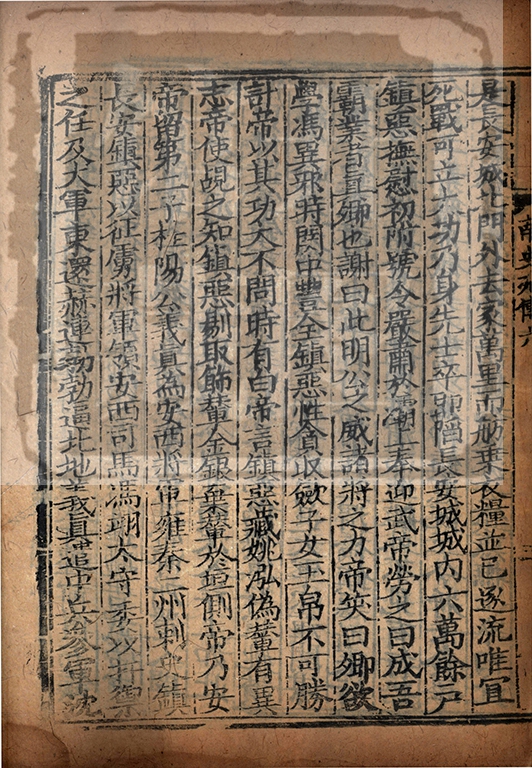 是長安城北門外去家萬里而舫乗衣糧並已逐流唯冝
死戰可立大功乃身先士卒即陷長安城城内六萬餘戸
鎮惡撫慰初附號令嚴肅於灞上奉迎武帝勞之曰成吾
霸業者真卿也謝曰此明公之威諸將之力帝笑曰卿欲
學馮異邪時関中豐全鎮惡性貪收斂子女玉帛不可勝
計帝以其功大不問時有白帝言鎮惡藏姚泓偽輦有異
志帝使覘之知鎮惡剔取飾輦金銀棄輦於垣側帝乃安
帝留第二子桂陽公義真為安西將軍雍秦二州刺史鎮
長安鎮惡以征虜將軍領安西司馬馮翊太守委以扞禦
之任及大軍東還赫連勃勃逼北地義真遣中兵參軍沈
南史列傳六